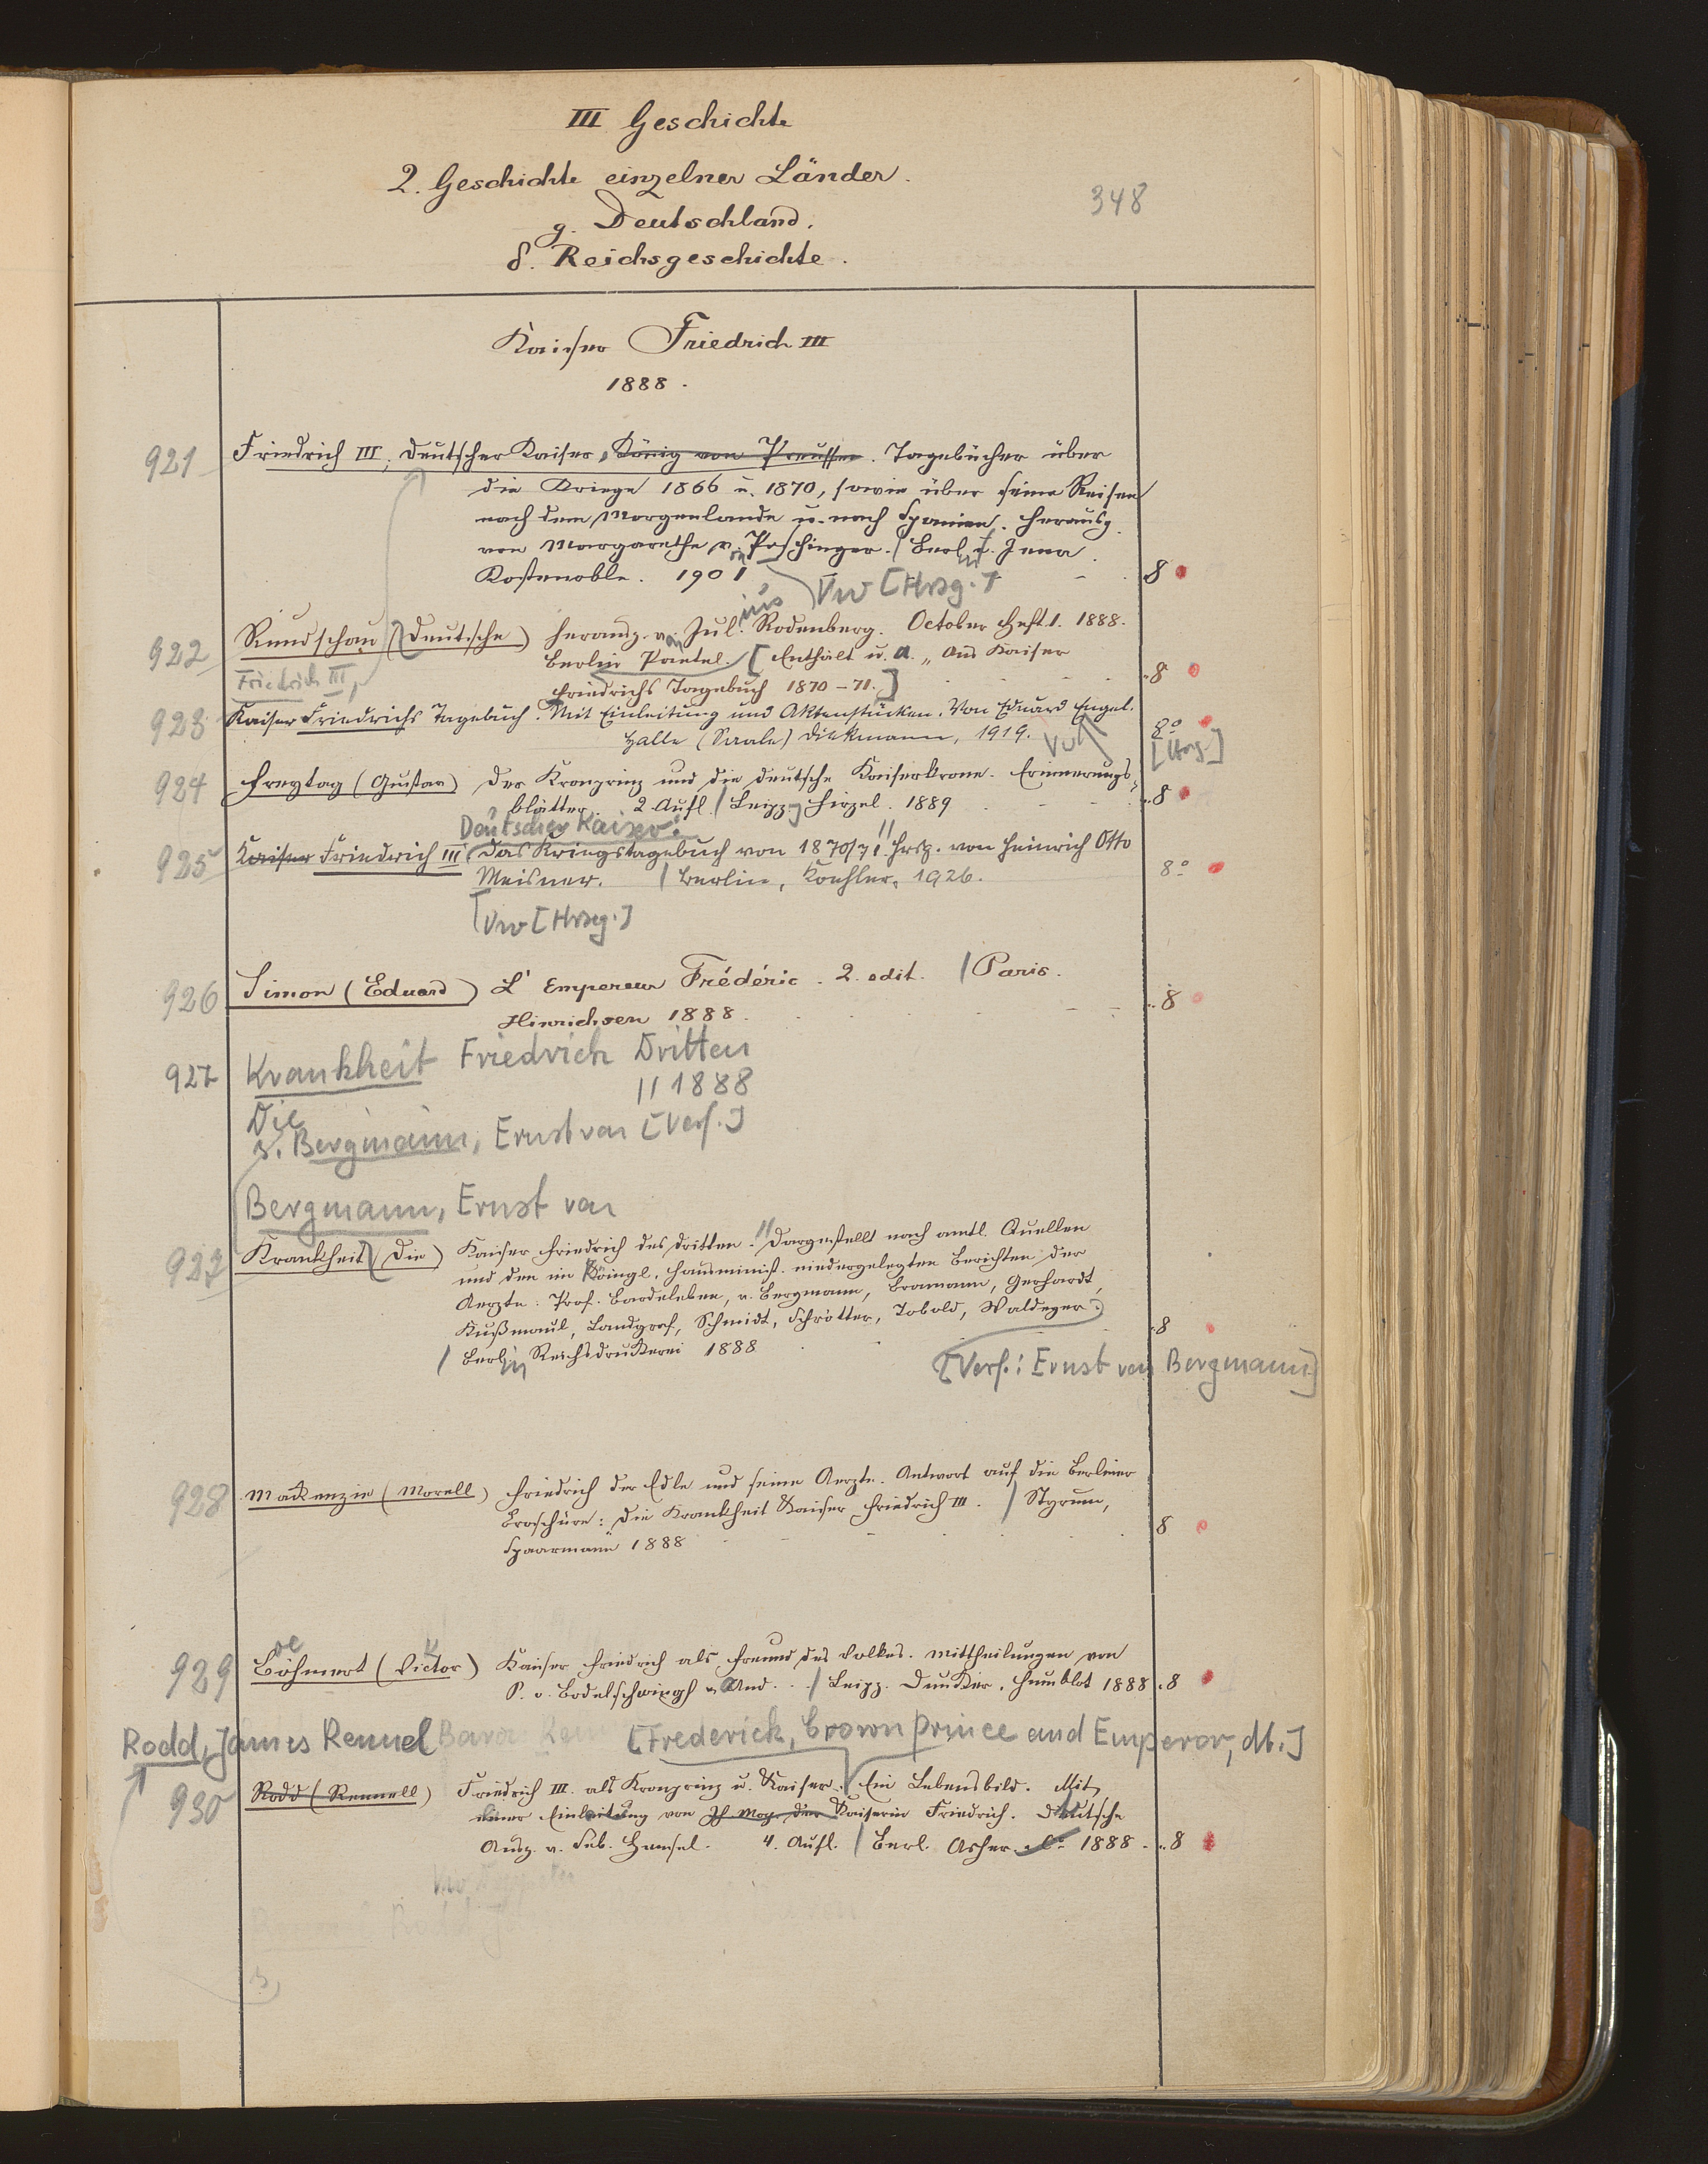 III Geschichte
2. Geschichte einzelner Länder.
348
g. Deutschland.
δ. Reichsgeschichte.
Kaiser Friedrich III
1888.
921 Friedrich III, Deutscher Kaiser, König von Preussen. Tagebücher über
die Kriege 1866 u. 1870, sowie über seine Reisen
nach dem Morgenlande u. nach Spanien. Herausg.
von Margarethe von Poschinger. / Berlin u. Jena
Kostenoble. 1901 8
Vw [Hrsg.]
922 Rundschau (Deutsche) herausg. von Julius Rodenberg. October Heft 1. 1888.
Berlin Paetel. [Enthält u. A. „Aus Kaiser
Friedrichs Tagebuch 1870-71.] 8
Friedrich III,
923 Kaiser Friedrichs Tagebuch. Mit Einleitung und Aktenstücken. Von Eduard Engel.
Halle (Saale) Diekmann, 1919. 8°
Vw [Hrsg.]
924 Freytag (Gustav) Der Kronprinz und die deutsche Kaiserkrone. Erinnerungs-
blätter. 2 Aufl. / Leipzg Hirzel. 1889 8
Deutscher Kaiser:
925 Kaiser Friedrich III Das Kriegstagebuch von 1870/71. // Hrsg. von Heinrich Otto
Meisner. / Berlin, Koehler, 1926. 8°
Vw [Hrsg.]
926 Simon (Eduard) L' Empereur Frédéric. 2. edit. / Paris.
Hinrichsen 1888. 8
927 Krankheit Friedrich Dritten
// 1888
Die
s. Bergmann, Ernst von [Verf.]
Bergmann, Ernst von
927 Krankheit (Die) Kaiser Friedrich des Dritten. // Dargestellt nach amtl. Quellen
und den im Königl. Hausminist. niedergelegten Berichten der
Aerzte: Prof. Bardeleben, v. Bergmann, Bramann, Gerhardt,
Kußmaul, Landgraf, Schmidt, Schrötter, Tobold, Waldeyer.
/ Berlin Reichsdruckerei 1888 8
[Verf.: Ernst von Bergmann]
928 Mackenzie (Morell) Friedrich der Edle und seine Aerzte. Antwort auf die Berliner
Broschüre: Die Krankheit Kaiser Friedrich III. / Styrum,
Spaarmann 1888 8
929 Böhmert (Victor) Kaiser Friedrich als Freund des Volkes. Mittheilungen von
P. v. Bodelschwingh u. And. / Leipz. Duncker, Humblot 1888 8
Rodd, James Rennel [Frederick, Crown prince and Emperor, dt.]
930 Rodd (Rennell) Friedrich III. als Kronprinz u. Kaiser. Ein Lebensbild. Mit
einer Einleitung von Ih. Maj. der Kaiserin Friedrich. Deutsche
Ausg. v. Seb. Hensel. 4. Aufl. / Berl. Asher 1888 8